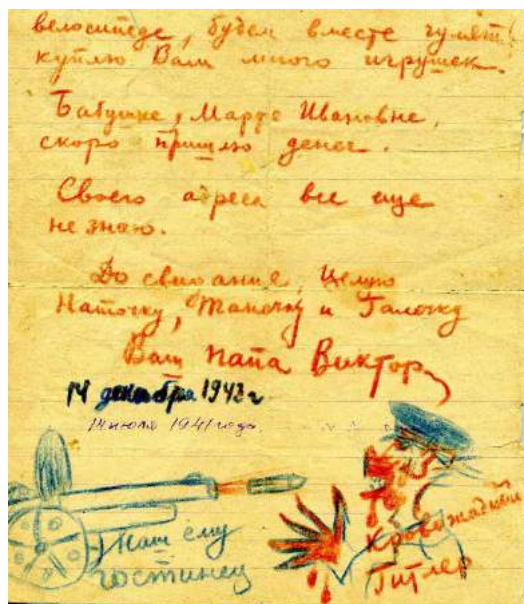 велосипеде, будем вместе гулять
куплю Вам много игрушек.
Бабушке, Марфе Ивановне,
скоро пришлю денег.
Своего адреса все еще
не знаю.
До свидание, Целую
Наточку, Таночку и Галочку
Ваш папа Виктор
14 декабря 1943 г
14 июля 1941 года.
Наш ему
гостинец
Кровожадный
Гитлер